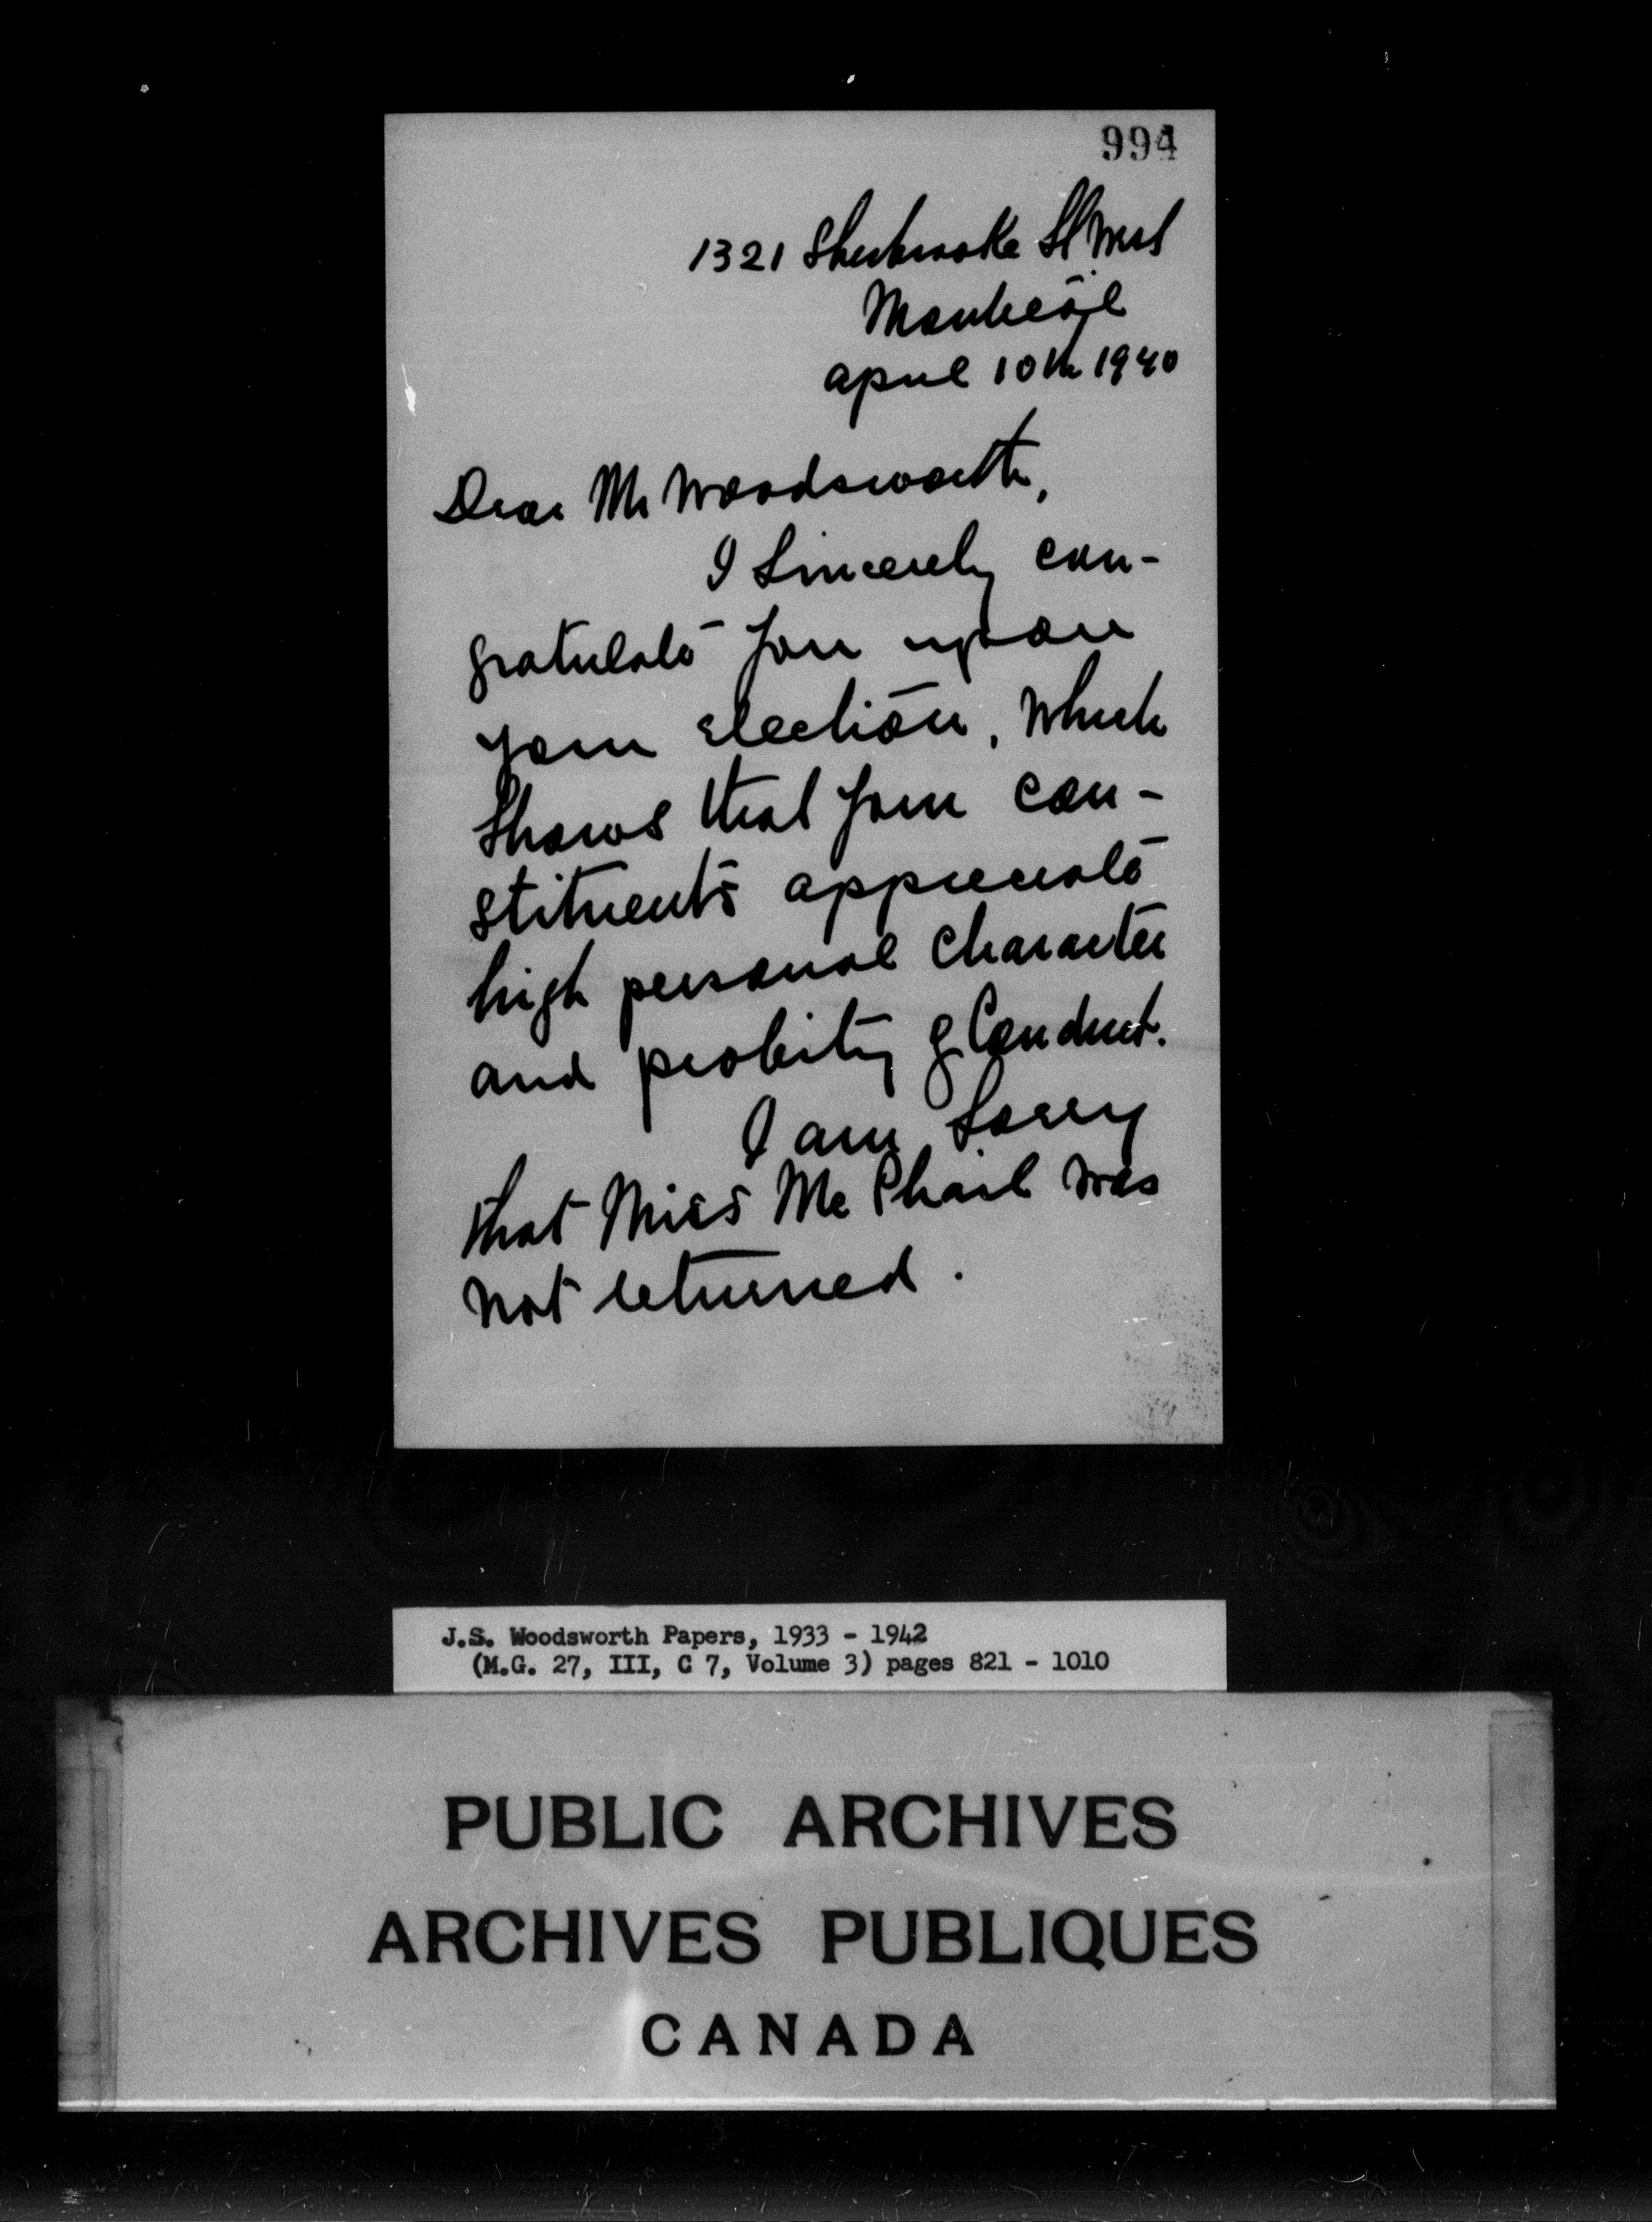 994
1321 Sherbrooke St West
Montreal
April 10th 1940
Dear Mr Woodsworth,
I sincerely con-
gratulate you upon
your election, which
shows that your con-
stituents appreciate
high personal character
and probity of conduct.
I am sorry
that Miss McPhail was
not returned.
J.S. Woodsworth Papers, 1933 - 1942
(M.G. 27, III, C 7, Volume 3) pages 821 - 1010
PUBLIC ARCHIVES
ARCHIVES PUBLIQUES
CANADA